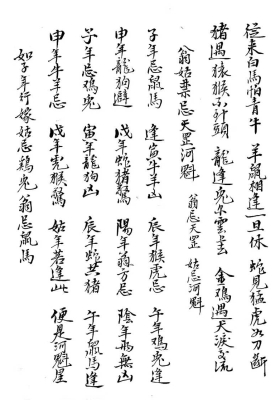 從來白馬怕青牛 羊鼠相逢一旦休 蛇見猛虎如刀斷
猪遇猿猴不到頭 龍逢兔兒雲去 金鷄遇犬淚交流
翁姑禁忌天罡河魁 翁忌天罡 姑忌河魁
子年忌鼠馬 逢寅牛羊凶 辰年猴虎忌 午年鷄兔逢
申年龍狗避 戌年蛇猪驚 陽年翁方忌 陰年的無凶
子年忌鷄兔 寅年龍狗凶 辰年蛇共猪 午年鼠馬逢
申年牛羊忌 戌年虎猴驚 姑年若逢此 便是河魁星
如子年行嫁姑忌鷄兔翁忌鼠馬